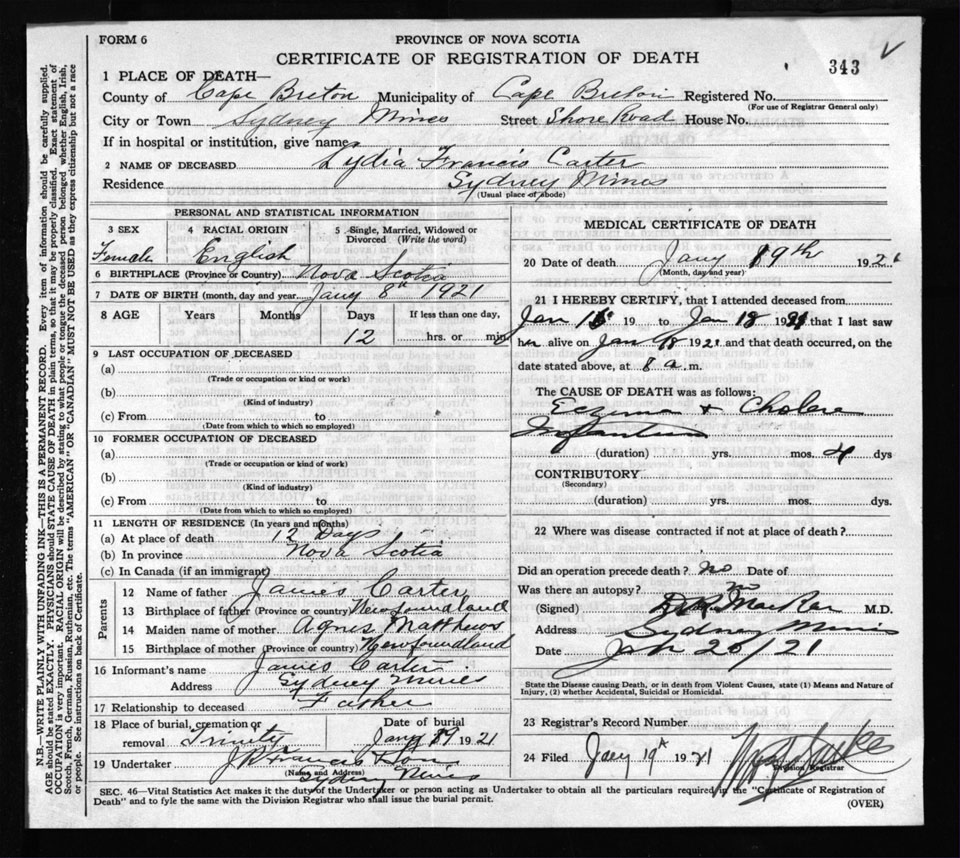 FORM 6
PROVINCE OF NOVA SCOTIA
CERTIFICATE OF REGISTRATION OF DEATH
343
1 PLACE OF DEATH—
County of Cape Breton Municipality of Cape Breton Registered No.
(For use of Registrar General only)
City or Town Sydney Mines Street Shore Road House No.
If in hospital or institution, give name
2 NAME OF DECEASED Lydia Francis Carter
Residence Sydney Mines
(Usual place of abode)
PERSONAL AND STATISTICAL INFORMATION
3 SEX 4 RACIAL ORIGIN 5 Single, Married, Widowed or Divorced (Write the word)
Female English
6 BIRTHPLACE (Province or Country) Nova Scotia
7 DATE OF BIRTH (month, day and year) Jany 8th 1921
8 AGE Years Months Days If less than one day,
12 hrs. or min.
9 LAST OCCUPATION OF DECEASED
(a)
(Trade or occupation or kind or work)
(b)
(Kind of industry)
(c) From to
(Date from which to which so employed)
10 FORMER OCCUPATION OF DECEASED
(a)
(Trade or occupation or kind of work)
(b)
(Kind of industry)
(c) From to
(Date from which to which so employed)
11 LENGTH OF RESIDENCE (In years and months)
(a) At place of death 12 Days
(b) In province Nova Scotia
(c) In Canada (if an immigrant)
Parents
12 Name of father James Carter
13 Birthplace of father (Province or country) Newfoundland
14 Maiden name of mother Agnes Matthews
15 Birthplace of mother (Province or country) Newfoundland
16 Informant's name James Carter
Address Sydney Mines
17 Relationship to deceased Father
18 Place of burial, cremation or removal Trinity
Date of burial Jany 19 1921
19 Undertaker J R Francis & Son
(Name and Address) Sydney Mines
MEDICAL CERTIFICATE OF DEATH
20 Date of death Jany 19th 1921
(Month, day and year)
21 I HEREBY CERTIFY, that I attended deceased from
Jan 19 to Jan 18 1921 that I last saw
her alive on Jan 18 1921 and that death occurred, on the
date stated above, at 8 a. m.
The CAUSE OF DEATH was as follows:
Eczema + Cholera
Infantum
(duration) yrs. mos. 4 dys
CONTRIBUTORY
(Secondary)
(duration) yrs. mos. dys.
22 Where was disease contracted if not at place of death?
Did an operation precede death? No Date of
Was there an autopsy? no
(Signed) MacRae M.D.
Address Sydney Mines
Date Jan 20/21
State the Disease causing Death, or in death from Violent Causes, state (1) Means and Nature of
Injury, (2) whether Accidental, Suicidal or Homicidal.
23 Registrar's Record Number
24 Filed Jany 19th 1921
Division Registrar
SEC. 46—Vital Statistics Act makes it the duty of the Undertaker or person acting as Undertaker to obtain all the particulars required in the "Certificate of Registration of
Death" and to fyle the same with the Division Registrar who shall issue the burial permit.
(OVER)
N.B.—WRITE PLAINLY WITH UNFADING INK—THIS IS A PERMANENT RECORD. Every item of information should be carefully supplied.
AGE should be stated EXACTLY. PHYSICIANS should STATE CAUSE OF DEATH in plain terms, so that it may be properly classified. Exact statement of
OCCUPATION is very important. RACIAL ORIGIN will be described by stating to what people or tongue the deceased person belonged whether English, Irish,
Scotch, French, German, Russian, Ruthenian, etc. The terms "AMERICAN" OR "CANADIAN" MUST NOT BE USED as they express citizenship but not a race
or people. See instructions on back of Certificate.